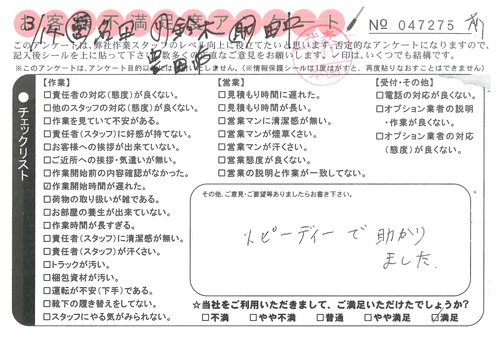 お客様不満足度アンケート
No 047275
このアンケートは、弊社作業スタッフのレベル向上に役立てたいと思います。否定的なアンケートになりますので、
記入後シールを上に貼って下さい。数多くの正直なご意見をお願いします。✓印は、いくつでも結構です。
【作業】
□責任者の対応(態度)が良くない。
□他のスタッフの対応(態度)が良くない。
□作業を見ていて不安がある。
□責任者(スタッフ)に好感が持てない。
□お客様への挨拶が出来ていない。
□ご近所への挨拶・気遣いが無い。
□作業開始前の内容確認がなかった。
□作業開始時間が遅れた。
□荷物の取り扱いが雑である。
□お部屋の養生が出来ていない。
□作業時間が長すぎる。
□責任者(スタッフ)に清潔感が無い。
□責任者(スタッフ)が汗くさい。
□トラックが汚い。
□梱包資材が汚い。
□運転が不安(下手)である。
□靴下の履き替えをしてない。
□スタッフにやる気がみられない。
【営業】
□見積もり時間に遅れた。
□見積もり時間が長い。
□営業マンに清潔感が無い。
□営業マンが煙草くさい。
□営業マンが汗くさい。
□営業態度が良くない。
□営業の説明と作業が一致してない。
【受付・その他】
□電話の対応が良くない。
□オプション業者の説明
・作業が良くない。
□オプション業者の対応
(態度)が良くない。
●チェックリスト
その他、ご意見・ご要望等ありましたらお書き下さい。
スピーディーで助かり
ました。
☆当社をご利用いただきまして、ご満足いただけたでしょうか?
□不満 □やや不満 □普通 □やや満足 ☑満足